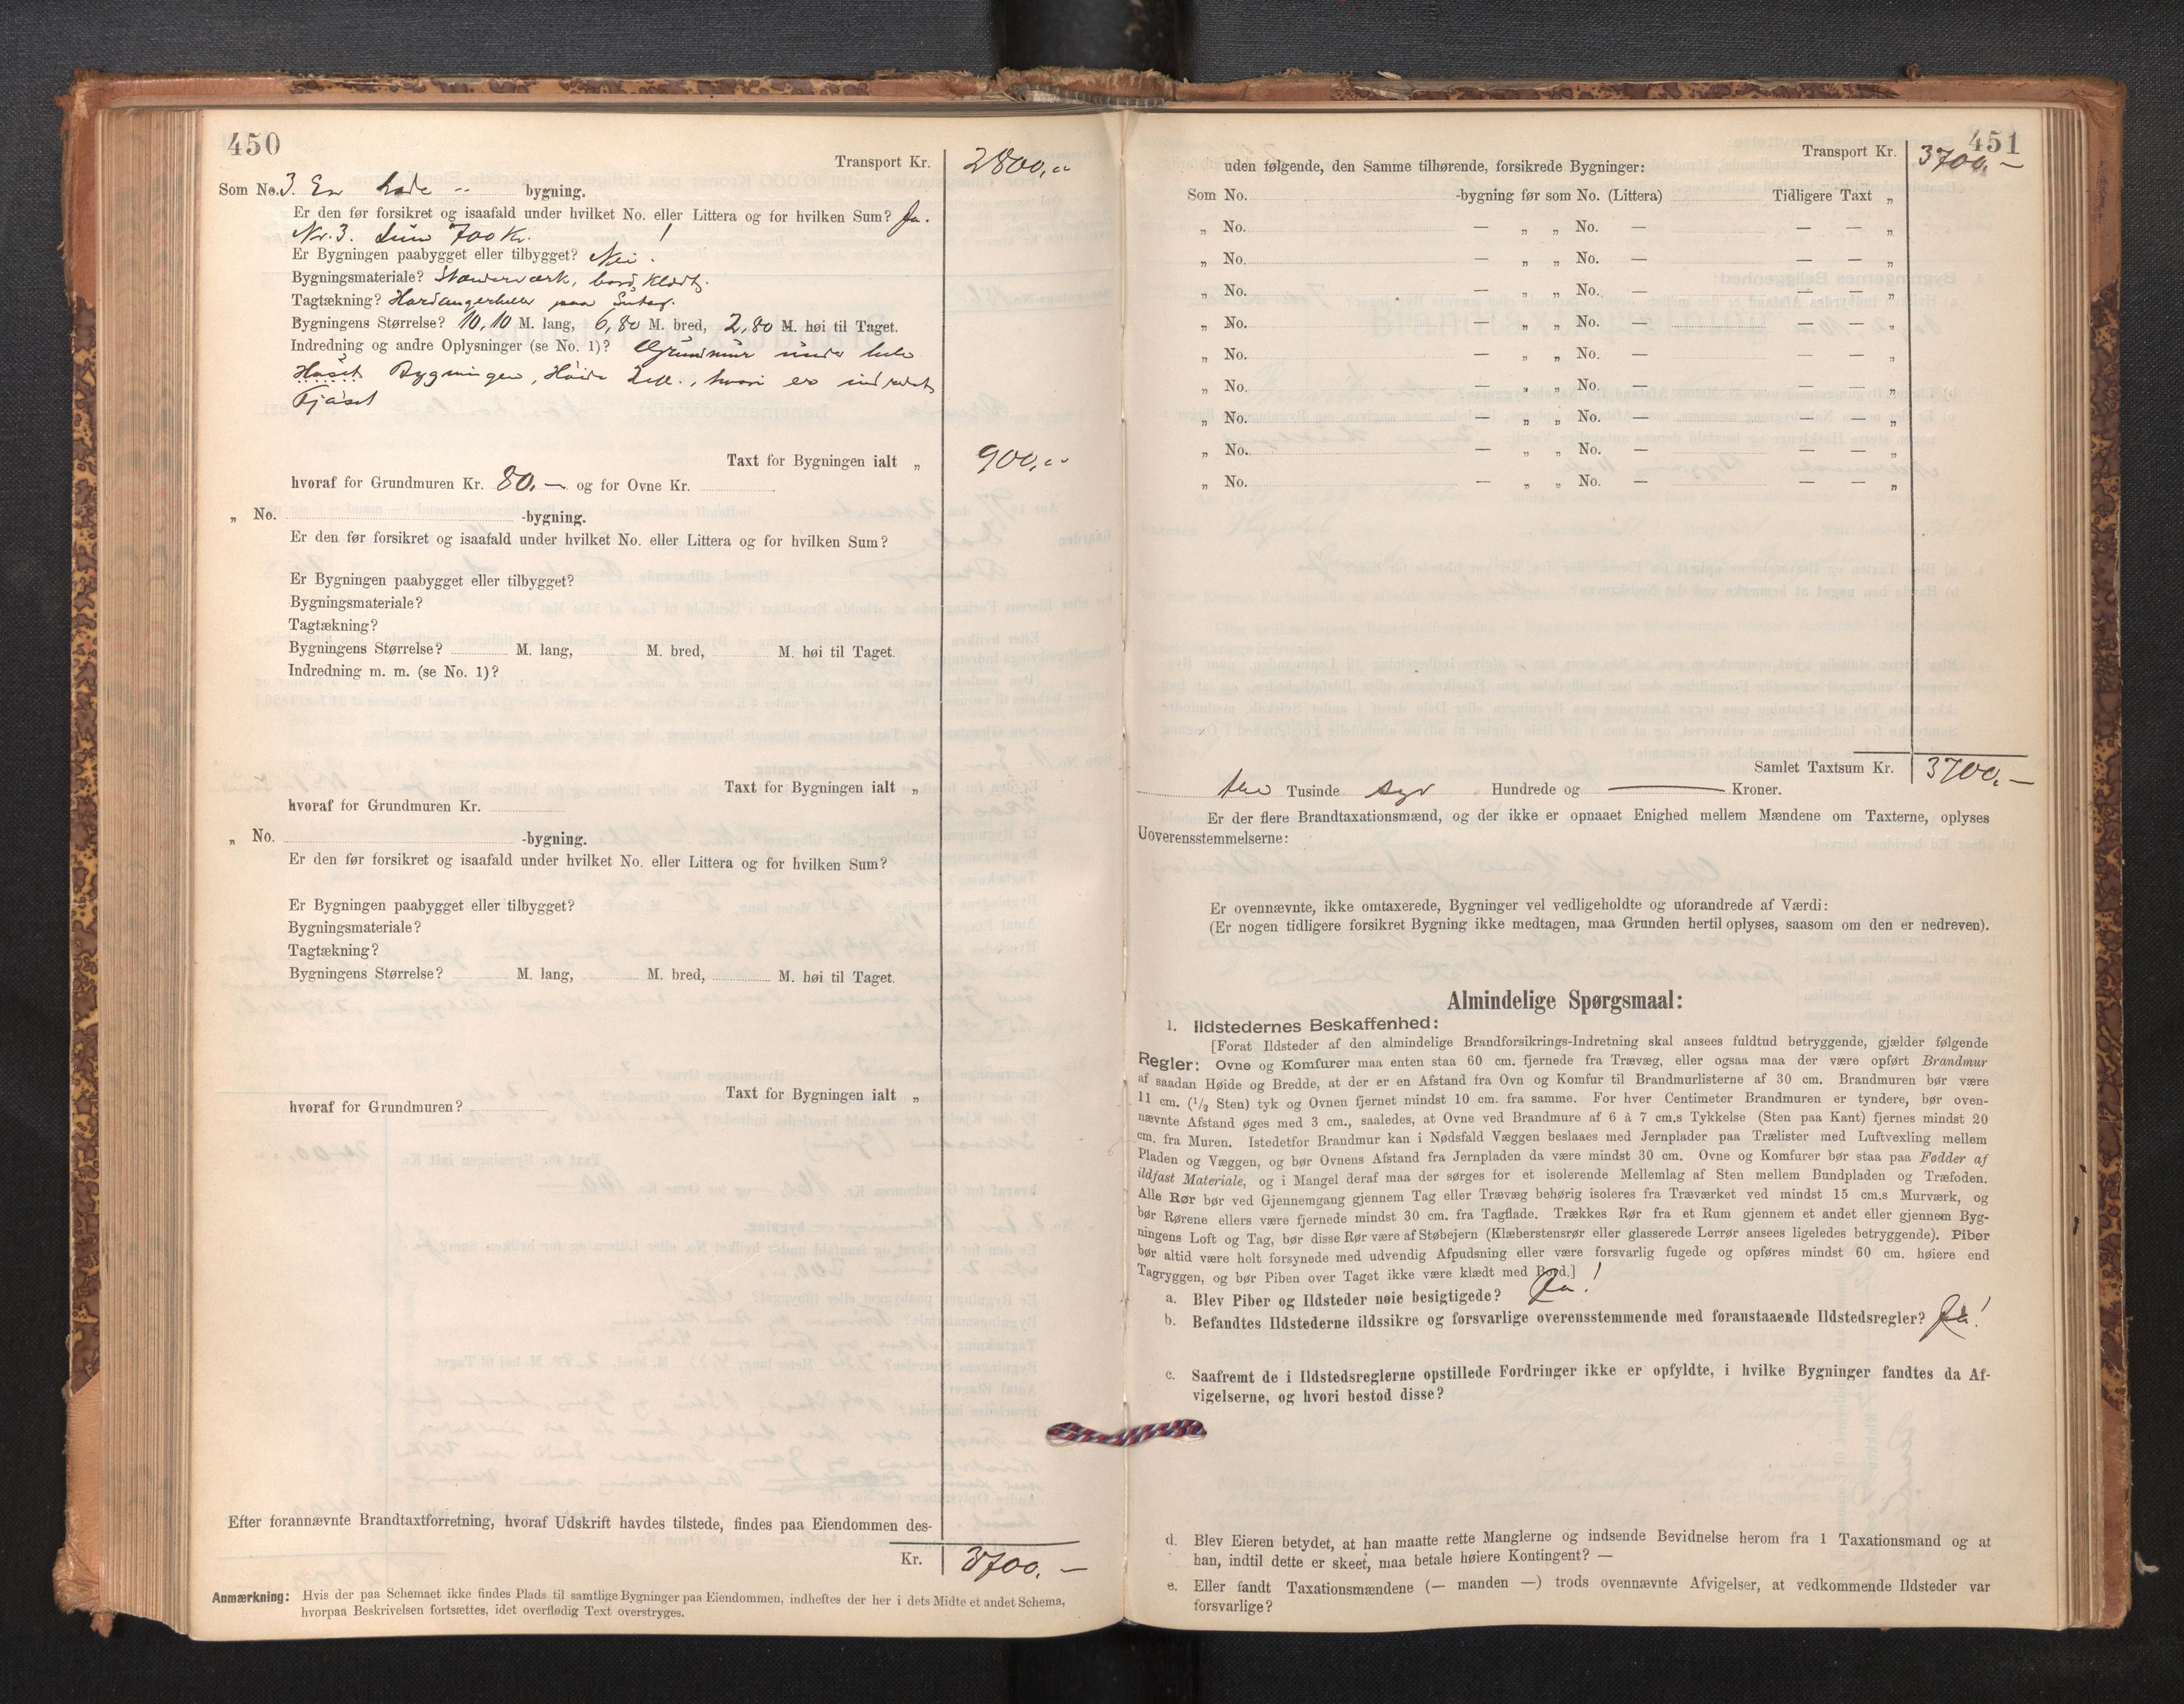 450
Transport Kr. 2800,"
Som No. 3. En Lade - bygning.
Er den før forsikret og isaafald under hvilket No. eller Littera og for hvilken Sum? Ja.
Nr. 3. Sum 700 Kr. !
Er Bygningen paabygget eller tilbygget? Nei.
Bygningsmateriale? Stænderværk, bord klædt.
Tagtækning? Hardangerheller paa
Bygningens Størrelse? 10,10 M. lang, 6,80 M. bred, 2,80 M. høi til Taget.
Indredning og andre Oplysninger (se No. 1)? Grundmur under hele
Huset Bygningen, Høide , hvori er indredet
Fjøset
Taxt for Bygningen ialt „ 900,"
hvoraf for Grundmuren Kr. 80.— og for Ovne Kr.
„ No. -bygning.
Er den før forsikret og isaafald under hvilket No. eller Littera og for hvilken Sum?
Er Bygningen paabygget eller tilbygget?
Bygningsmateriale?
Tagtækning?
Bygningens Størrelse? M. lang, M. bred, M. høi til Taget.
Indredning m. m. (se No. 1)?
Taxt for Bygningen ialt „
hvoraf for Grundmuren Kr.
„ No. -bygning.
Er den før forsikret og isaafald under hvilket No. eller Littera og for hvilken Sum?
Er Bygningen paabygget eller tilbygget?
Bygningsmateriale?
Tagtækning?
Bygningens Størrelse? M. lang, M. bred, M. høi til Taget.
Taxt for Bygningen ialt „
hvoraf for Grundmuren?
Efter forannævnte Brandtaxtforretning, hvoraf Udskrift havdes tilstede, findes paa Eiendommen des-
Kr. 3700.—
Anmærkning: Hvis der paa Schemaet ikke findes Plads til samtlige Bygninger paa Eiendommen, indheftes der her i dets Midte et andet Schema,
hvorpaa Beskrivelsen fortsættes, idet overflødig Text overstryges.
451
Transport Kr. 3700.—
uden følgende, den Samme tilhørende, forsikrede Bygninger:
Som No. -bygning før som No. (Littera) Tidligere Taxt „
„ No. — „ „ No. — — — „
„ No. — „ „ No. — — — „
„ No. — „ „ No. — — — „
„ No. — „ „ No. — — — „
„ No. — „ „ No. — — — „
„ No. — „ „ No. — — — „
„ No. — „ „ No. — — — „
„ No. — „ „ No. — — — „
„ No. — „ „ No. — — — „
Samlet Taxtsum Kr. 3700.—
tre Tusinde syv Hundrede og — Kroner.
Er der flere Brandtaxationsmænd, og der ikke er opnaaet Enighed mellem Mændene om Taxterne, oplyses
Uoverensstemmelserne:
Er ovennævnte, ikke omtaxerede, Bygninger vel vedligeholdte og uforandrede af Værdi:
(Er nogen tidligere forsikret Bygning ikke medtagen, maa Grunden hertil oplyses, saasom om den er nedreven).
Almindelige Spørgsmaal:
1. Ildstedernes Beskaffenhed:
[Forat Ildsteder af den almindelige Brandforsikrings-Indretning skal ansees fuldtud betryggende, gjælder følgende
Regler: Ovne og Komfurer maa enten staa 60 cm. fjernede fra Trævæg, eller ogsaa maa der være opført Brandmur
af saadan Høide og Bredde, at der er en Afstand fra Ovn og Komfur til Brandmurlisterne af 30 cm. Brandmuren bør være
11 cm. (1/2 Sten) tyk og Ovnen fjernet mindst 10 cm. fra samme. For hver Centimeter Brandmuren er tyndere, bør oven-
nævnte Afstand øges med 3 cm., saaledes, at Ovne ved Brandmure af 6 à 7 cm.s Tykkelse (Sten paa Kant) fjernes mindst 20
cm. fra Muren. Istedetfor Brandmur kan i Nødsfald Væggen beslaaes med Jernplader paa Trælister med Luftvexling mellem
Pladen og Væggen, og bør Ovnens Afstand fra Jernpladen da være mindst 30 cm. Ovne og Komfurer bør staa paa Fødder af
ildfast Materiale, og i Mangel deraf maa der sørges for et isolerende Mellemlag af Sten mellem Bundpladen og Træfoden.
Alle Rør bør ved Gjennemgang gjennem Tag eller Trævæg behørig isoleres fra Træværket ved mindst 15 cm.s Murværk, og
bør Rørene ellers være fjernede mindst 30 cm. fra Tagflade. Trækkes Rør fra et Rum gjennem et andet eller gjennem Byg-
ningens Loft og Tag, bør disse Rør være af Støbejern (Klæberstensrør eller glasserede Lerrør ansees ligeledes betryggende). Piber
bør altid være helt forsynede med udvendig Afpudsning eller være forsvarlig fugede og opføres mindst 60 cm. høiere end
Tagryggen, og bør Piben over Taget ikke være klædt med Bord.]
a. Blev Piber og Ildsteder nøie besigtigede? Ja!
b. Befandtes Ildstederne ildssikre og forsvarlige overensstemmende med foranstaaende Ildstedsregler? Ja!
c. Saafremt de i Ildstedsreglerne opstillede Fordringer ikke er opfyldte, i hvilke Bygninger fandtes da Af-
vigelserne, og hvori bestod disse?
d. Blev Eieren betydet, at han maatte rette Manglerne og indsende Bevidnelse herom fra 1 Taxationsmand og at
han, indtil dette er skeet, maa betale høiere Kontingent? —
e. Eller fandt Taxationsmændene (— manden —) trods ovennævnte Afvigelser, at vedkommende Ildsteder var
forsvarlige?